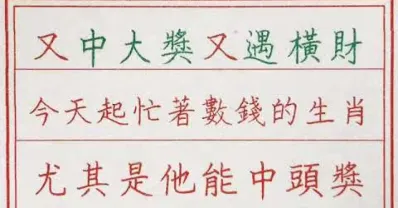 又中大獎又遇橫財
今天起忙著數錢的生肖
尤其是他能中頭獎